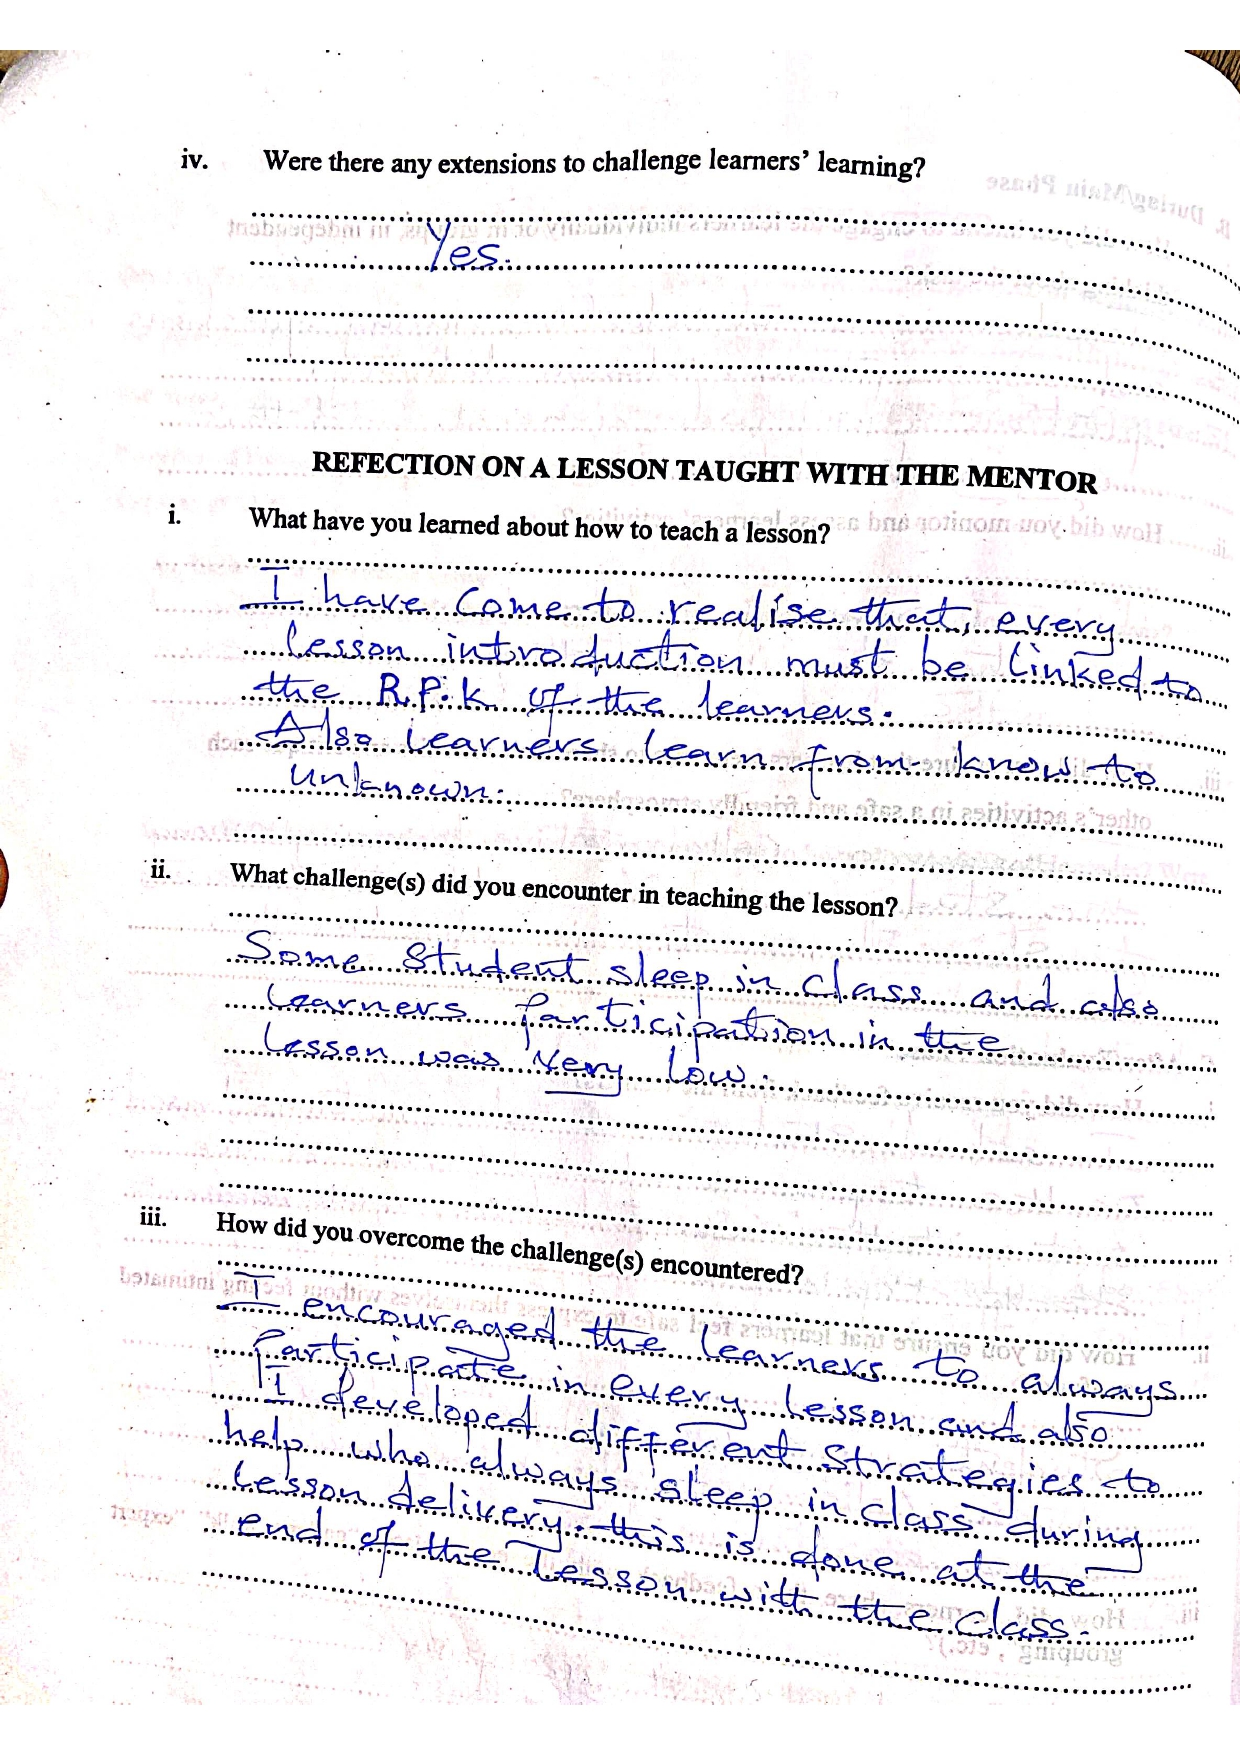 iv. Were there any extensions to challenge learners' learning?
Yes.
REFECTION ON A LESSON TAUGHT WITH THE MENTOR
i. What have you learned about how to teach a lesson?
I have come to realise that, every
lesson introduction must be linked to
the R.P.k of the learners.
Also learners learn from know to
unknown.
ii. What challenge(s) did you encounter in teaching the lesson?
Some student sleep in class and also
learners participation in the
lesson was very low.
iii. How did you overcome the challenge(s) encountered?
I encouraged the learners to always
participate in every lesson and also
I developed different strategies to
help who always sleep in class during
lesson delivery. this is done at the
end of the lesson with the class.